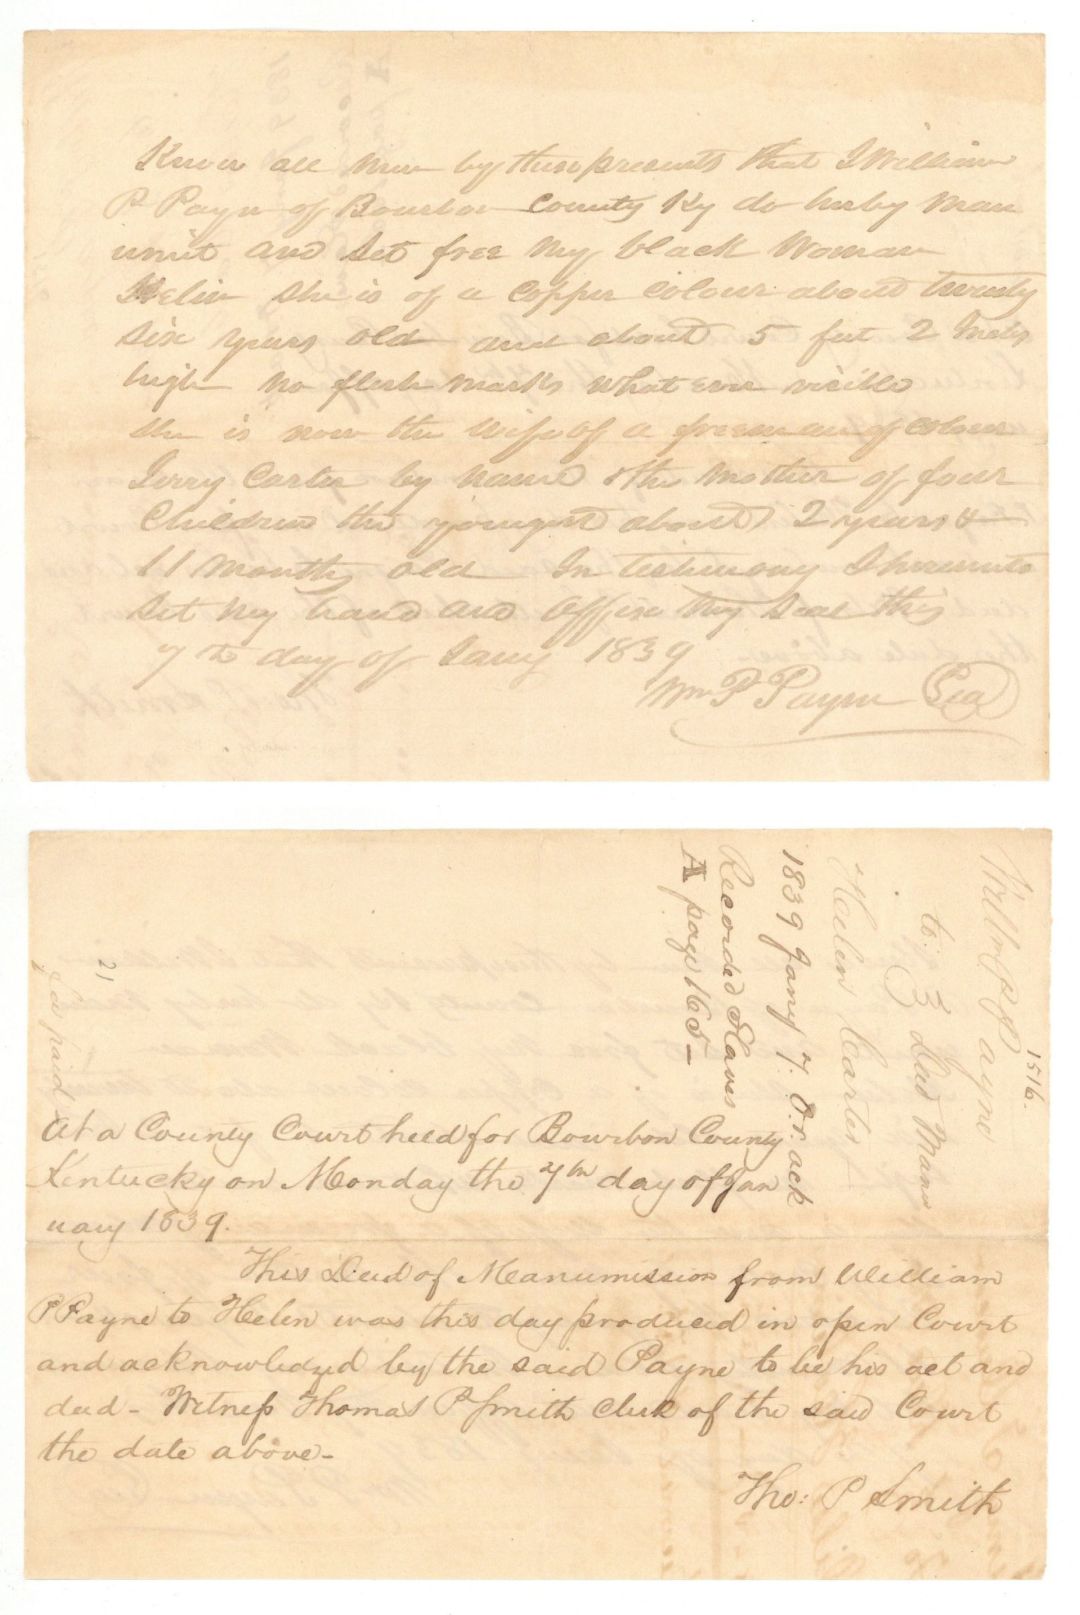 Know all men by these presents that I William
P Payn of Bourbon County Ky do herby man
umit and set free my black Woman
Helin she is of a copper colour about twenty
six years old and about 5 feet 2 inches
high no flesh marks what ever visible
she is now the wife of a freeman of colour
Jerry Carter by name & the mother of four
Children the youngest about 2 years &
11 months old In testimony I hereunto
set my hand and affix my seal this
7th day of Jany 1839
Wm P Payne Seal
1516.
Willm P Payne
to } Deed Manu
Heelen Carter
1839 Jany 7. O.r. ack
Recorded Slaves
A page 165 –
21
paid
At a County Court held for Bourbon County
Kentucky on Monday the 7th day of Jan
uary 1839.
This Deed of Manumission from William
P Payne to Helen was this day produced in open Court
and acknowledged by the said Payne to be his act and
deed – Witness Thomas P Smith Clerk of the said Court
the date above –
Tho: P Smith